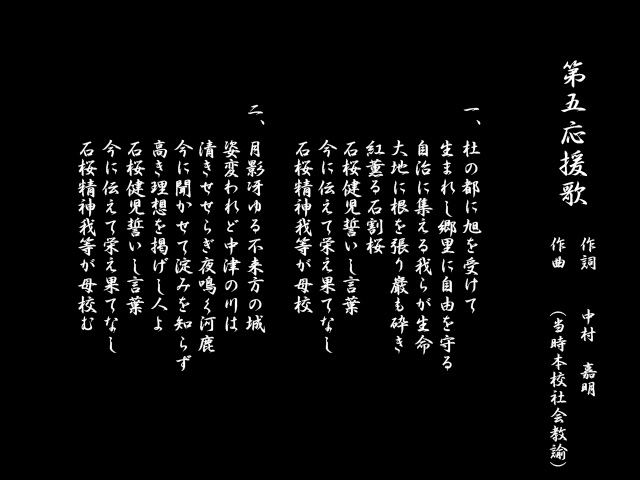 第五応援歌
作詞　中村　嘉明
作曲　（当時本校社会教諭）
一、杜の都に旭を受けて
生まれし郷里に自由を守る
自治に集える我らが生命
大地に根を張り巌も砕き
紅薫る石割桜
石桜健児誓いし言葉
今に伝えて栄え果てなし
石桜精神我等が母校
二、月影冴ゆる不来方の城
姿変われど中津の川は
清きせせらぎ夜鳴く河鹿
今に聞かせて淀みを知らず
高き理想を掲げし人よ
石桜健児誓いし言葉
今に伝えて栄え果てなし
石桜精神我等が母校む